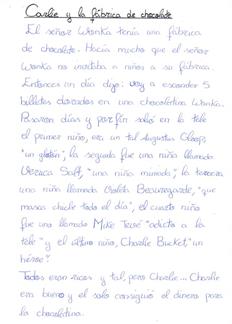 Carlie y la fábrica de chocolate
El señor Wonka tenía una fábrica
de chocolate. Hacía mucho que el señor
Wonka no invitaba a niños a su fábrica.
Entonces un día dijo: voy a esconder 5
billetes dorados en una chocolatina Wonka.
Pasaron días y por fin salió en la tele
el primer niño, era un tal Augustus Gloop,
"un glotón", la segunda fue una niña llamada
Veruca Salt, "una niña mimada", la tercera
una niña llamada Violeta Beauregarde, "que
masca chicle todo el día", el cuarto niño
fue uno llamado Mike Teavé "adicto a la
tele" y el último niño, Charlie Bucket "un
héroe".
Todos eran ricos y tal, pero Charlie... Charlie
era bueno y el solo consiguió el dinero para
la chocolatina.